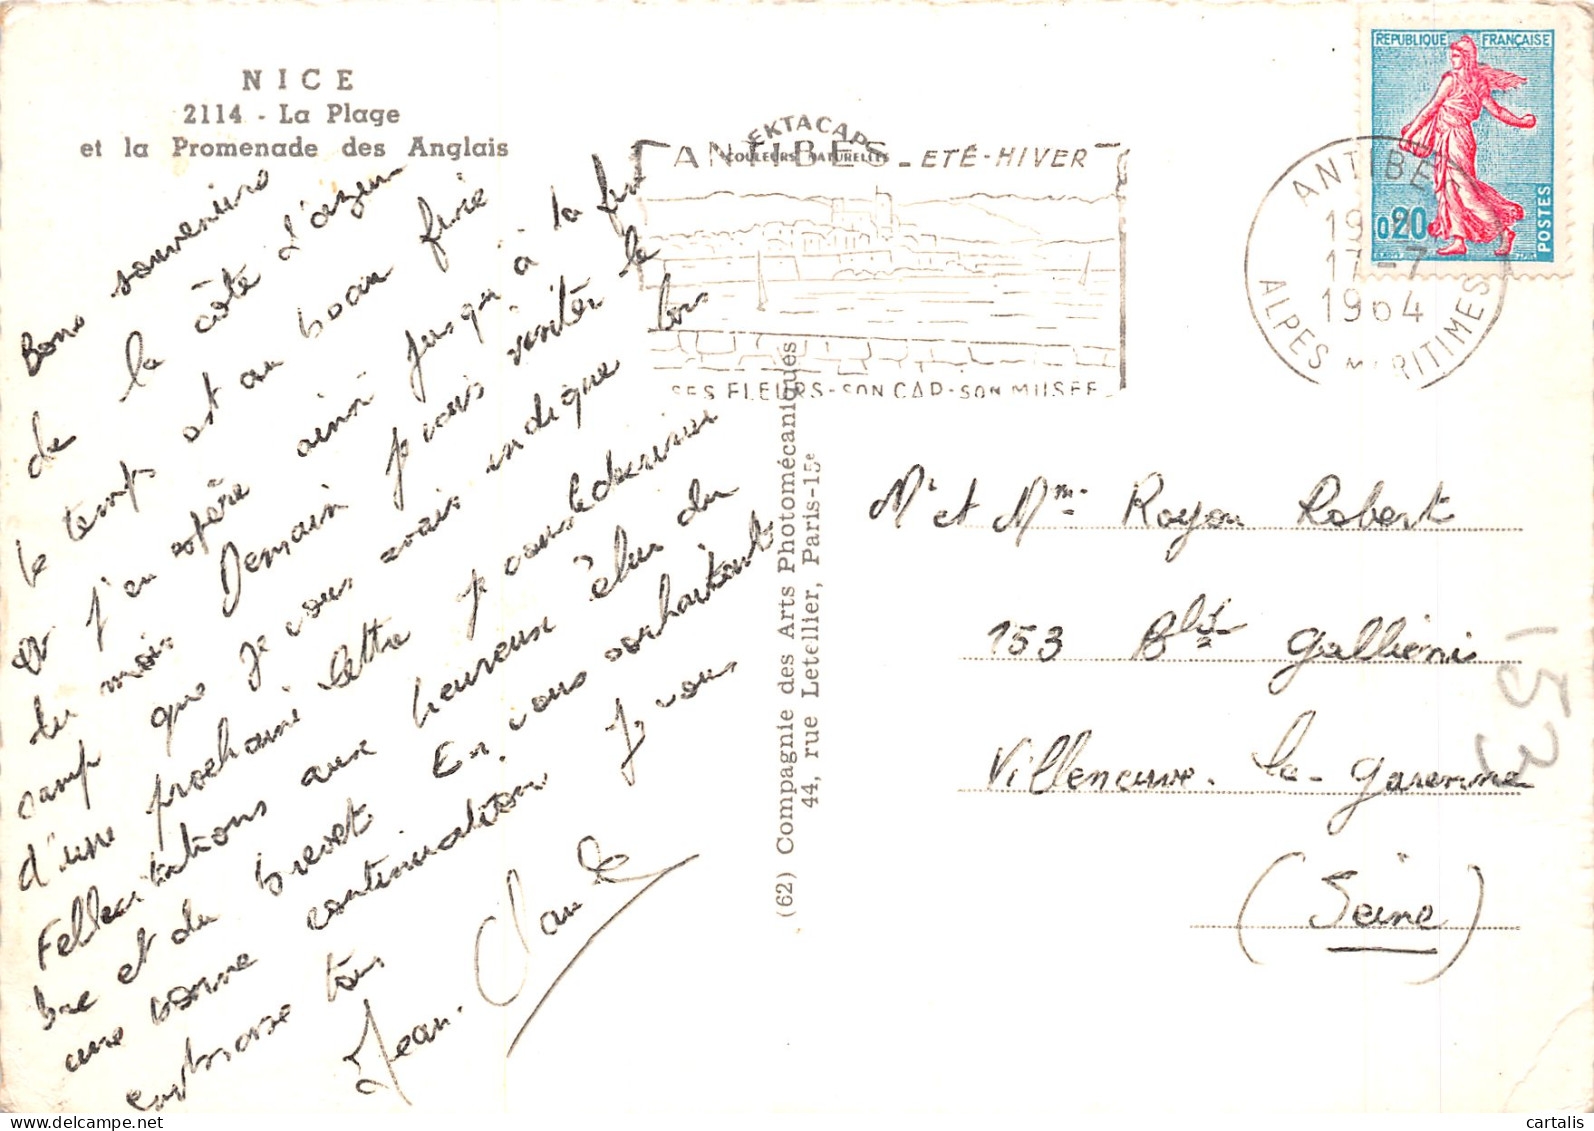 NICE
2114 - La Plage
et la Promenade des Anglais
Bons souvenirs
de la côte d'azur
le temps est au beau fixe
et j'en espère ainsi jusqu'à la fin
du mois Demain je vais visiter le
camp que je vous avais indiqué lors
d'une prochaine lettre je vous le
Félicitations aux heureux élus du
bac et du brevet. En vous souhaitant
une bonne continuation je vous
embrasse tous
Jean-Claude
EKTACAPS
COULEURS NATURELLES
ANTIBES - ETÉ-HIVER
SES FLEURS - SON CAP - SON MUSEE
ANTIBES
17-7
1964
ALPES MARITIMES
REPUBLIQUE FRANÇAISE
0,20
POSTES
(62) Compagnie des Arts Photomécaniques
44, rue Letellier, Paris-15e
Mr et Mme Royou Robert
153 Bld Galliéni
Villeneuve-la-Garenne
(Seine)
153
cartalis